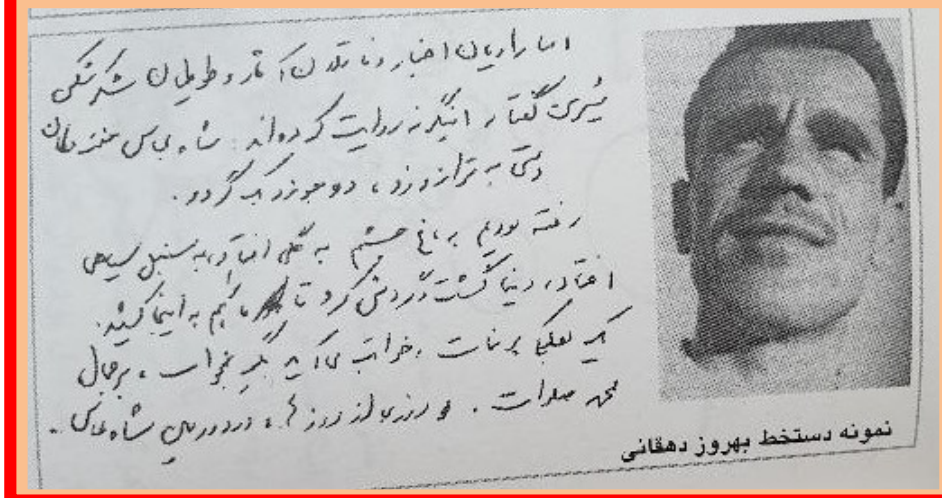 اما راویان اخبار و ناقلان آثار و طوطیان شکرشکن
شیرین گفتار اینگونه روایت کرده‌اند. شاه عباس
دستی به ترازو زد، دو مویز یک گردو.
رفته بودیم به باغ چشمم به گلی افتاد، به سنبل سیاهی
افتاد، دنیا گشت و گردش کرد تا ما هم به اینجا کشید.
یک لعکی بر نبات، خوابت می‌آید بگیر بخواب، بر جمال
محمد صلوات. روزی از روزها، در دوره‌ی شاه عباس.
نمونه دستخط بهروز دهقانی